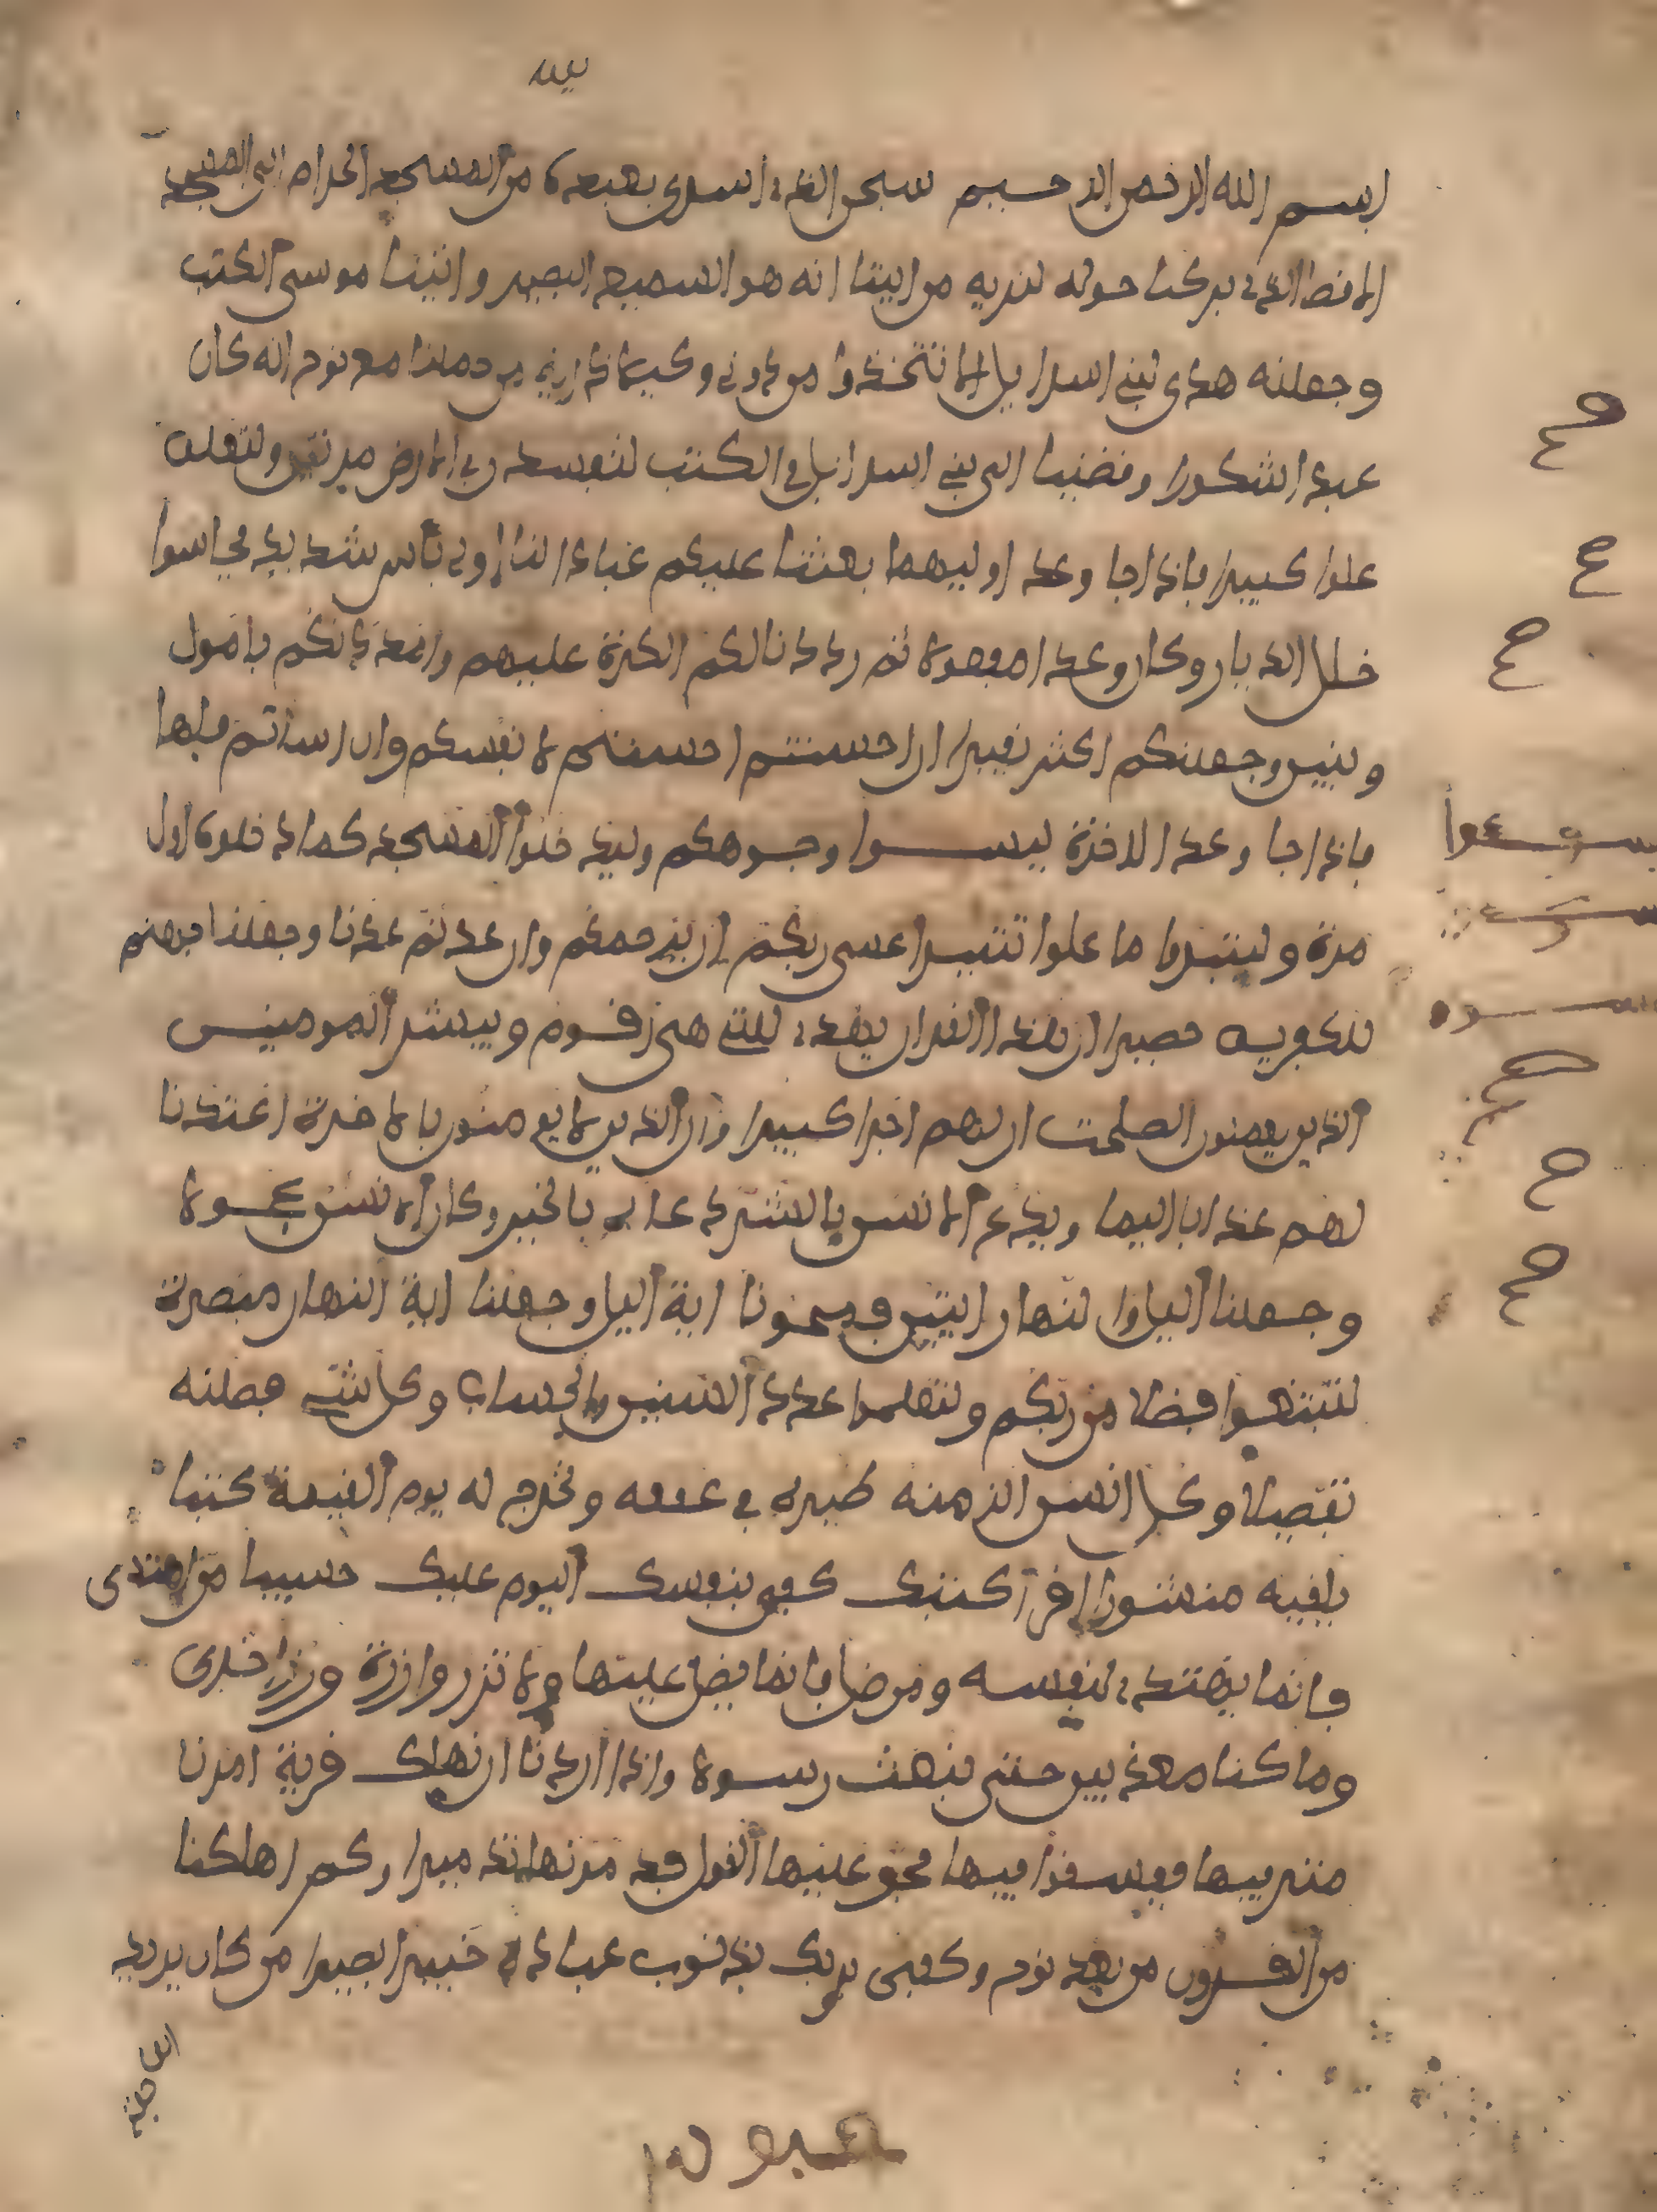 بسم الله الرحمن الرحيم سبحن الذي اسرى بعبده من المسجد الحرام الى المسجد
الاقصا الذي بركنا حوله لنريه من ايتنا انه هو السميع البصير واتينا موسى الكتب
وجعلنه هدى لبني اسرايل الا تتخذوا من دوني وكيلا ذرية من حملنا مع نوح انه كان
عبدا شكورا وقضينا الى بني اسرايل في الكتب لتفسدن في الارض مرتين ولتعلن
علوا كبيرا فاذا جا وعد اوليهما بعثنا عليكم عبادا لنا اولي باس شديد فجاسوا
خلل الديار وكان وعدا مفعولا ثم رددنا لكم الكرة عليهم وامددنكم بامول
وبنين وجعلنكم اكثر نفيرا ان احسنتم احسنتم لانفسكم وان اساتم فلها
فاذا جا وعد الاخرة ليسوا وجوهكم وليدخلوا المسجد كما دخلوه اول
مرة وليتبروا ما علوا تتبيرا عسى ربكم ان يرحمكم وان عدتم عدنا وجعلنا جهنم
للكفرين حصيرا ان هذا القران يهدي للتي هي اقوم ويبشر المومنين
الذين يعملون الصلحت ان لهم اجرا كبيرا وان الذين لا يومنون بالاخرة اعتدنا
لهم عذابا اليما ويدع الانسن بالشر دعاه بالخير وكان الانسن عجولا
وجعلنا اليل والنهار ايتين فمحونا اية اليل وجعلنا اية النهار مبصرة
لتبتغوا فضلا من ربكم ولتعلموا عدد السنين والحساب وكل شي فصلنه
تفصيلا وكل انسن الزمنه طيره في عنقه ونخرج له يوم القيمة كتبا
يلقيه منشورا اقرا كتبك كفى بنفسك اليوم عليك حسيبا من اهتدى
فانما يهتدي لنفسه ومن ضل فانما يضل عليها ولا تزر وازرة وزر اخرى
وما كنا معذبين حتى نبعث رسولا واذا اردنا ان نهلك قرية امرنا
مترفيها ففسقوا فيها فحق عليها القول فدمرنها تدميرا وكم اهلكنا
من القرون من بعد نوح وكفى بربك بذنوب عباده خبيرا بصيرا من كان يريد